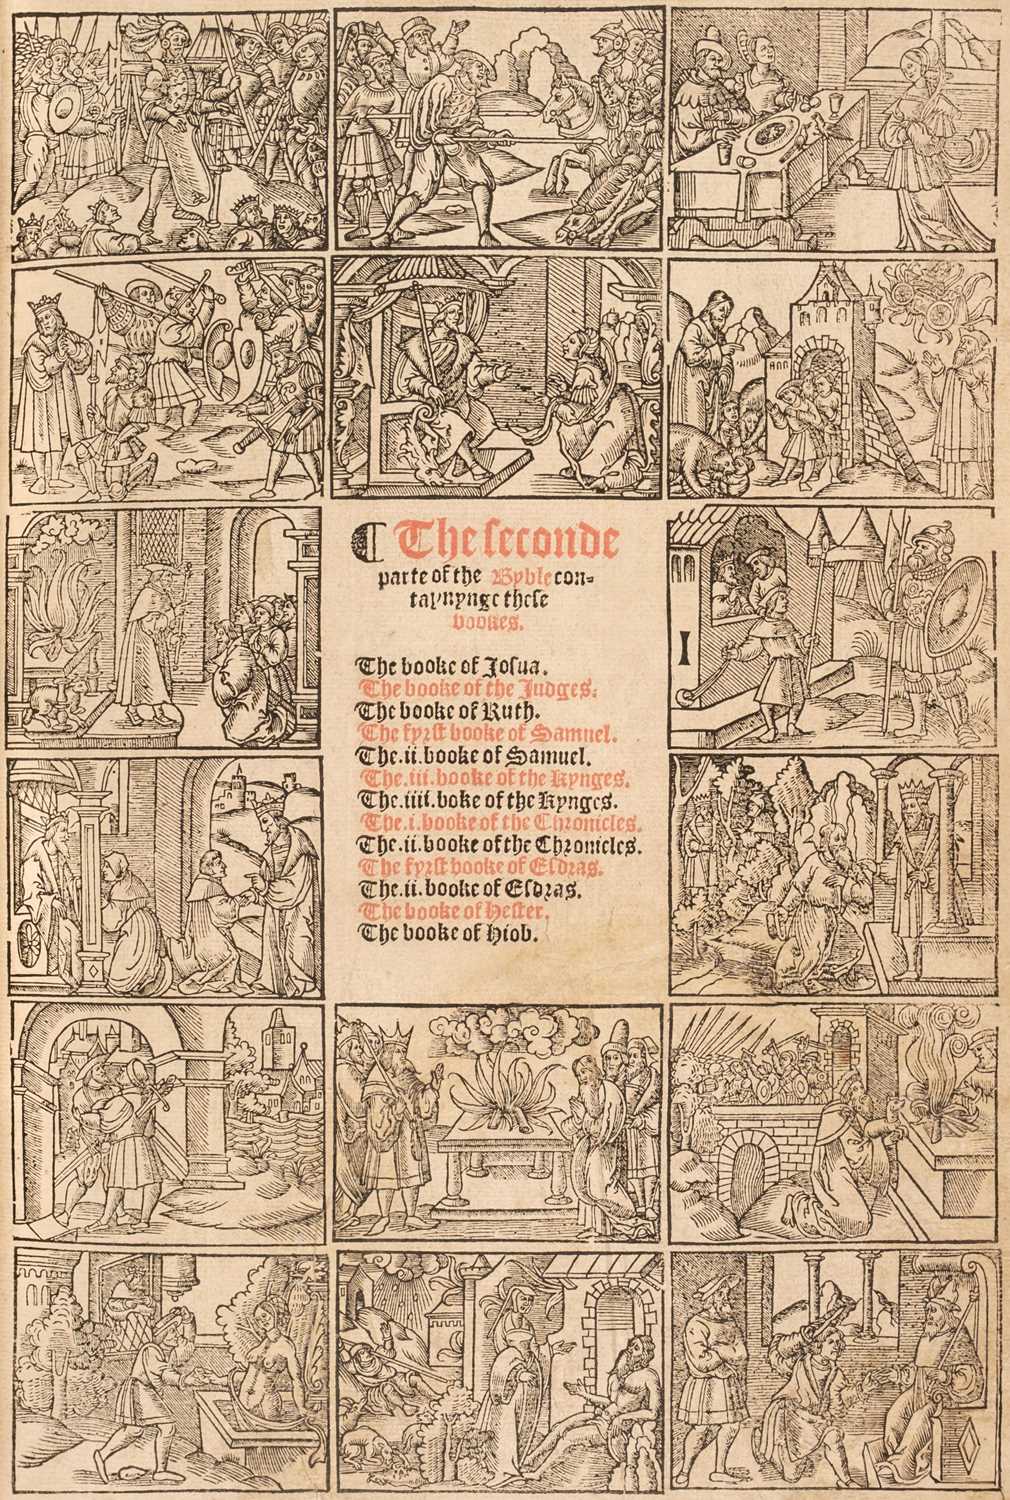 ¶ The seconde
parte of the Byble con-
taynynge these
bookes.
The booke of Josua.
The booke of the Judges.
The booke of Ruth.
The fyrst booke of Samuel.
The.ii.booke of Samuel.
The.iii.booke of the Kynges.
The.iiii.boke of the Kynges.
The.i.booke of the Chronicles.
The.ii.booke of the Chronicles.
The fyrst booke of Esdras.
The.ii.booke of Esdras.
The booke of Hester.
The booke of Hiob.